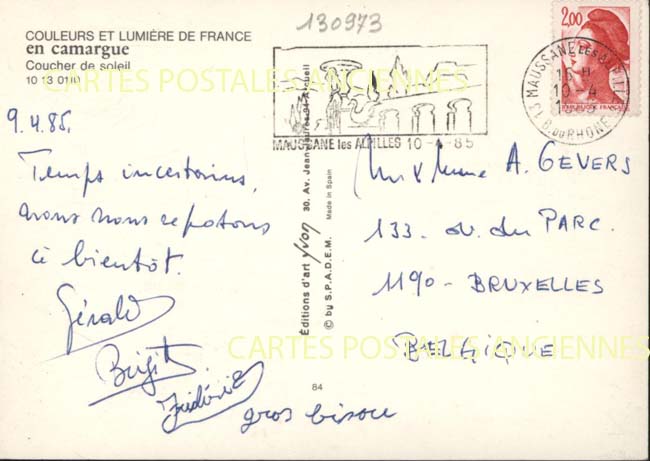 130973
COULEURS ET LUMIÈRE DE FRANCE
en camargue
Coucher de soleil
10 13 0110
CARTES POSTALES ANCIENNES
2,00
RÉPUBLIQUE FRANÇAISE
13 MAUSSANE LES ALPILLES
B. DU RHONE
MAUSSANE les ALPILLES 10-4-85
9.4.85.
Temps incertains,
nous nous reposons
à bientôt.
Gérald
Brigitte
Frédéric
gros bisou
Éditions d'art yvon 30, Av. Jean Jaurès 94 Arcueil
© by S.P.A.D.E.M. Made in Spain
84
Mr & Mme A. GEVERS
133. av. du PARC.
1190 - BRUXELLES
BELGIQUE
CARTES POSTALES ANCIENNES